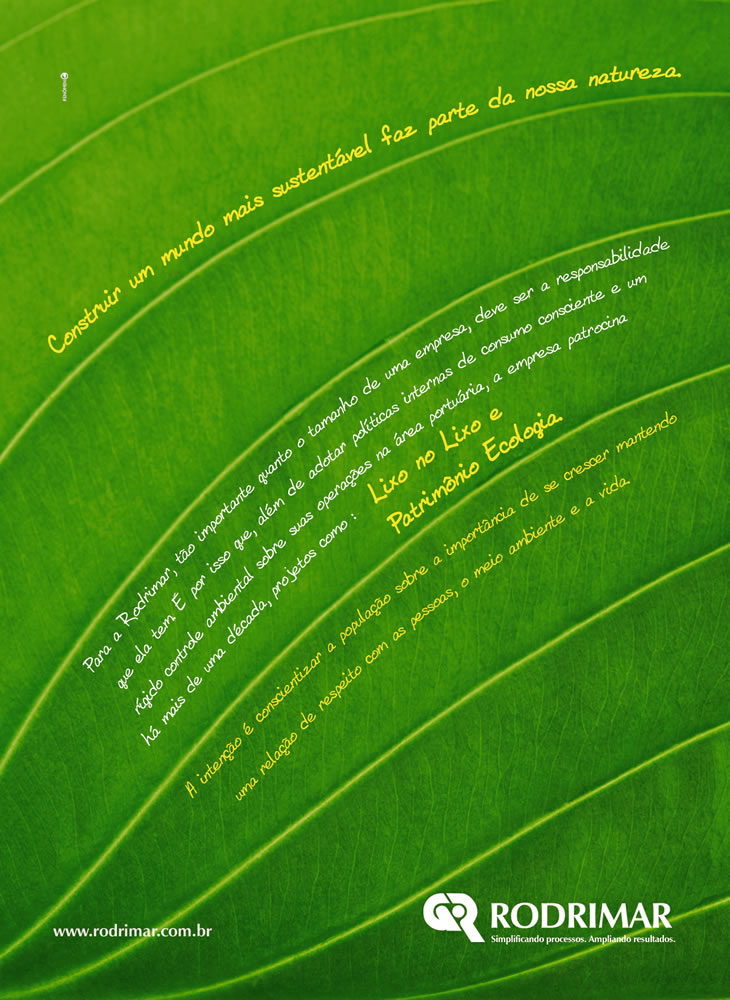 Construir um mundo mais sustentável faz parte da nossa natureza.
Para a Rodrimar, tão importante quanto o tamanho de uma empresa, deve ser a responsabilidade
que ela tem. É por isso que, além de adotar políticas internas de consumo consciente e um
rígido controle ambiental sobre suas operações na área portuária, a empresa patrocina
há mais de uma década, projetos como :
Lixo no Lixo e
Patrimônio Ecologia.
A intenção é conscientizar a população sobre a importância de se crescer mantendo
uma relação de respeito com as pessoas, o meio ambiente e a vida.
www.rodrimar.com.br
RODRIMAR
Simplificando processos. Ampliando resultados.